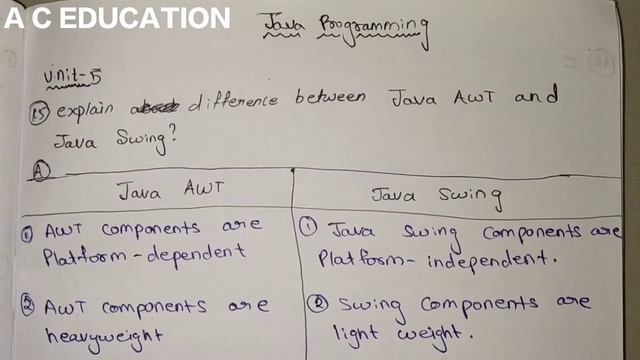 A C EDUCATION
Java Programming
Unit-5
25 explain difference between Java AWT and
Java Swing?
A
Java AWT
Java Swing
1 AWT components are
Platform-dependent
1 Java Swing components are
Platform-independent.
2 AWT components are
heavyweight
2 Swing components are
light weight.